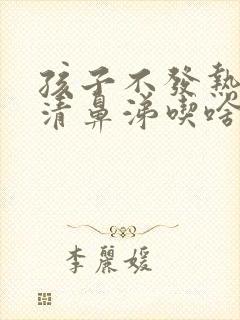 孩子不發熱
清鼻涕喫啥
李麗媛